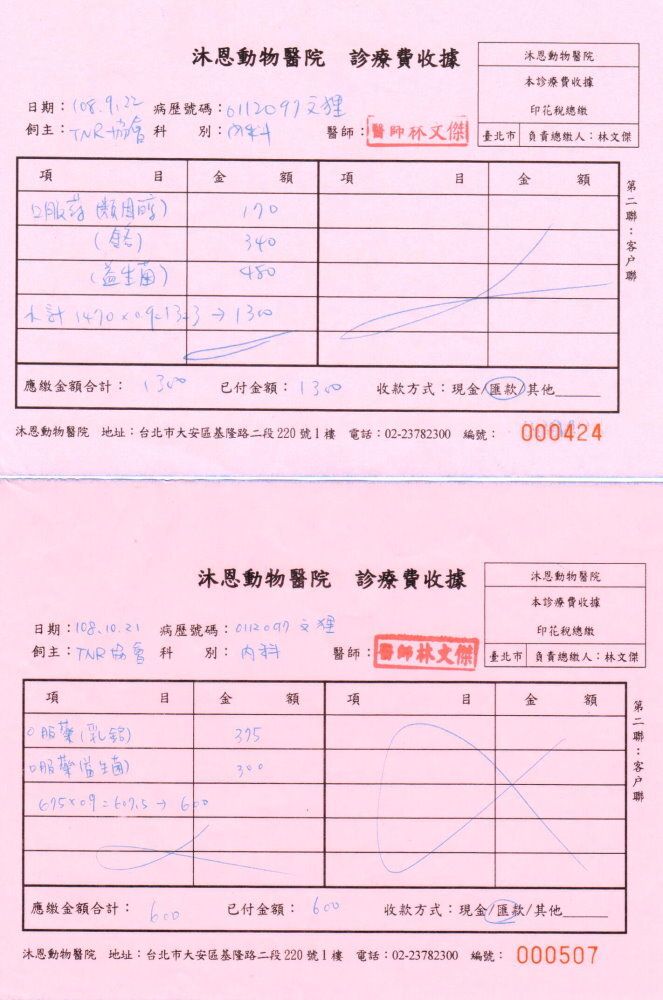 沐恩動物醫院 診療費收據
沐恩動物醫院
本診療費收據
印花稅總繳
臺北市 負責總繳人：林文傑
日期：108.9.22 病歷號碼：0112097 文狸
飼主：TNR協會 科 別：內科 醫師：醫師林文傑
項 目 金 額 項 目 金 額
口服药 170
340
(益生菌) 480
1470×0.9=1323→1300
應繳金額合計：1300 已付金額：1300 收款方式：現金/匯款/其他
第二聯：客戶聯
沐恩動物醫院 地址：台北市大安區基隆路二段220號1樓 電話：02-23782300 編號：000424
沐恩動物醫院 診療費收據
沐恩動物醫院
本診療費收據
印花稅總繳
臺北市 負責總繳人：林文傑
日期：108.10.21 病歷號碼：0112097 文狸
飼主：TNR協會 科 別：內科 醫師：醫師林文傑
項 目 金 額 項 目 金 額
口服藥(乳鋁) 375
口服藥(益生菌) 300
675×0.9=607.5→600
應繳金額合計：600 已付金額：600 收款方式：現金/匯款/其他
第二聯：客戶聯
沐恩動物醫院 地址：台北市大安區基隆路二段220號1樓 電話：02-23782300 編號：000507